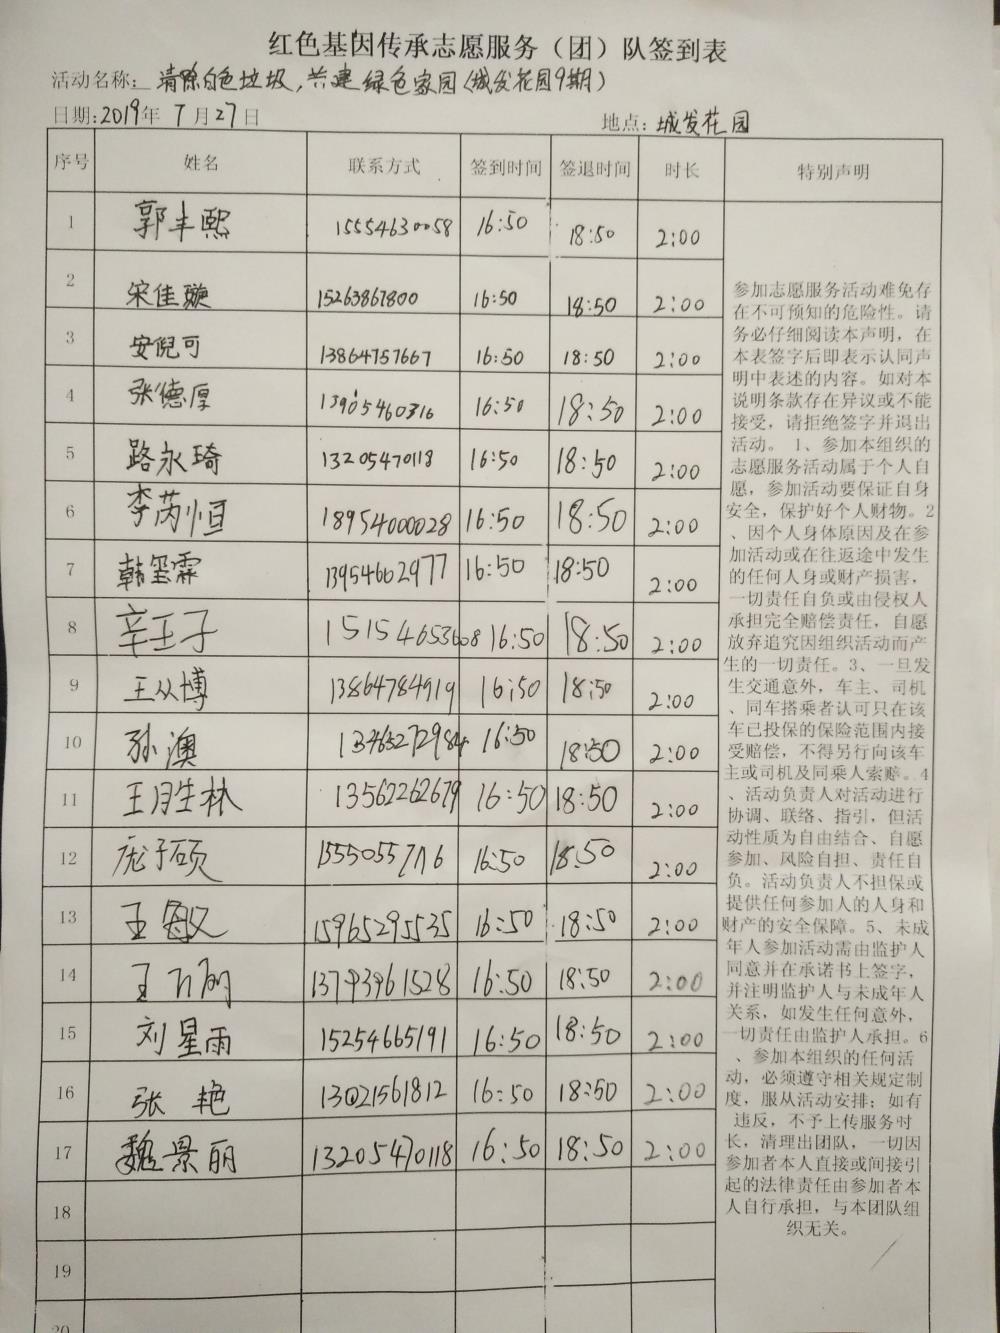 红色基因传承志愿服务（团）队签到表
活动名称：清除白色垃圾，共建绿色家园（城发花园9期）
日期:2019年 7月27日 地点：城发花园
序号 姓名 联系方式 签到时间 签退时间 时长 特别声明
1 郭丰熙 15554630058 16:50 18:50 2:00
2 宋佳璇 15263867800 16:50 18:50 2:00
3 安倪可 13864757667 16:50 18:50 2:00
4 张德厚 13905460316 16:50 18:50 2:00
5 路永琦 13205470118 16:50 18:50 2:00
6 李芮恒 18954000028 16:50 18:50 2:00
7 韩玺霖 13954602977 16:50 18:50 2:00
8 辛玉子 15154653608 16:50 18:50 2:00
9 王从博 13864784919 16:50 18:50 2:00
10 孙澳 13463272984 16:50 18:50 2:00
11 王胜林 13562262679 16:50 18:50 2:00
12 庞子硕 16:50 18:50 2:00
13 王 15965295535 16:50 18:50 2:00
14 王 13793961528 16:50 18:50 2:00
15 刘星雨 15254665191 16:50 18:50 2:00
16 张艳 13021561812 16:50 18:50 2:00
17 魏景丽 13205470118 16:50 18:50 2:00
18
19
20
参加志愿服务活动难免存
在不可预知的危险性。请
务必仔细阅读本声明，在
本表签字后即表示认同声
明中表述的内容。如对本
说明条款存在异议或不能
接受，请拒绝签字并退出
活动。 1、参加本组织的
志愿服务活动属于个人自
愿，参加活动要保证自身
安全，保护好个人财物。2
、因个人身体原因及在参
加活动或在往返途中发生
的任何人身或财产损害，
一切责任自负或由侵权人
承担完全赔偿责任，自愿
放弃追究因组织活动而产
生的一切责任。3、一旦发
生交通意外，车主、司机
、同车搭乘者认可只在该
车已投保的保险范围内接
受赔偿，不得另行向该车
主或司机及同乘人索赔。4
、活动负责人对活动进行
协调、联络、指引，但活
动性质为自由结合、自愿
参加、风险自担、责任自
负。活动负责人不担保或
提供任何参加人的人身和
财产的安全保障。5、未成
年人参加活动需由监护人
同意并在承诺书上签字，
并注明监护人与未成年人
关系，如发生任何意外，
一切责任由监护人承担。6
、参加本组织的任何活
动，必须遵守相关规定制
度，服从活动安排；如有
违反，不予上传服务时
长，清理出团队，一切因
参加者本人直接或间接引
起的法律责任由参加者本
人自行承担，与本团队组
织无关。